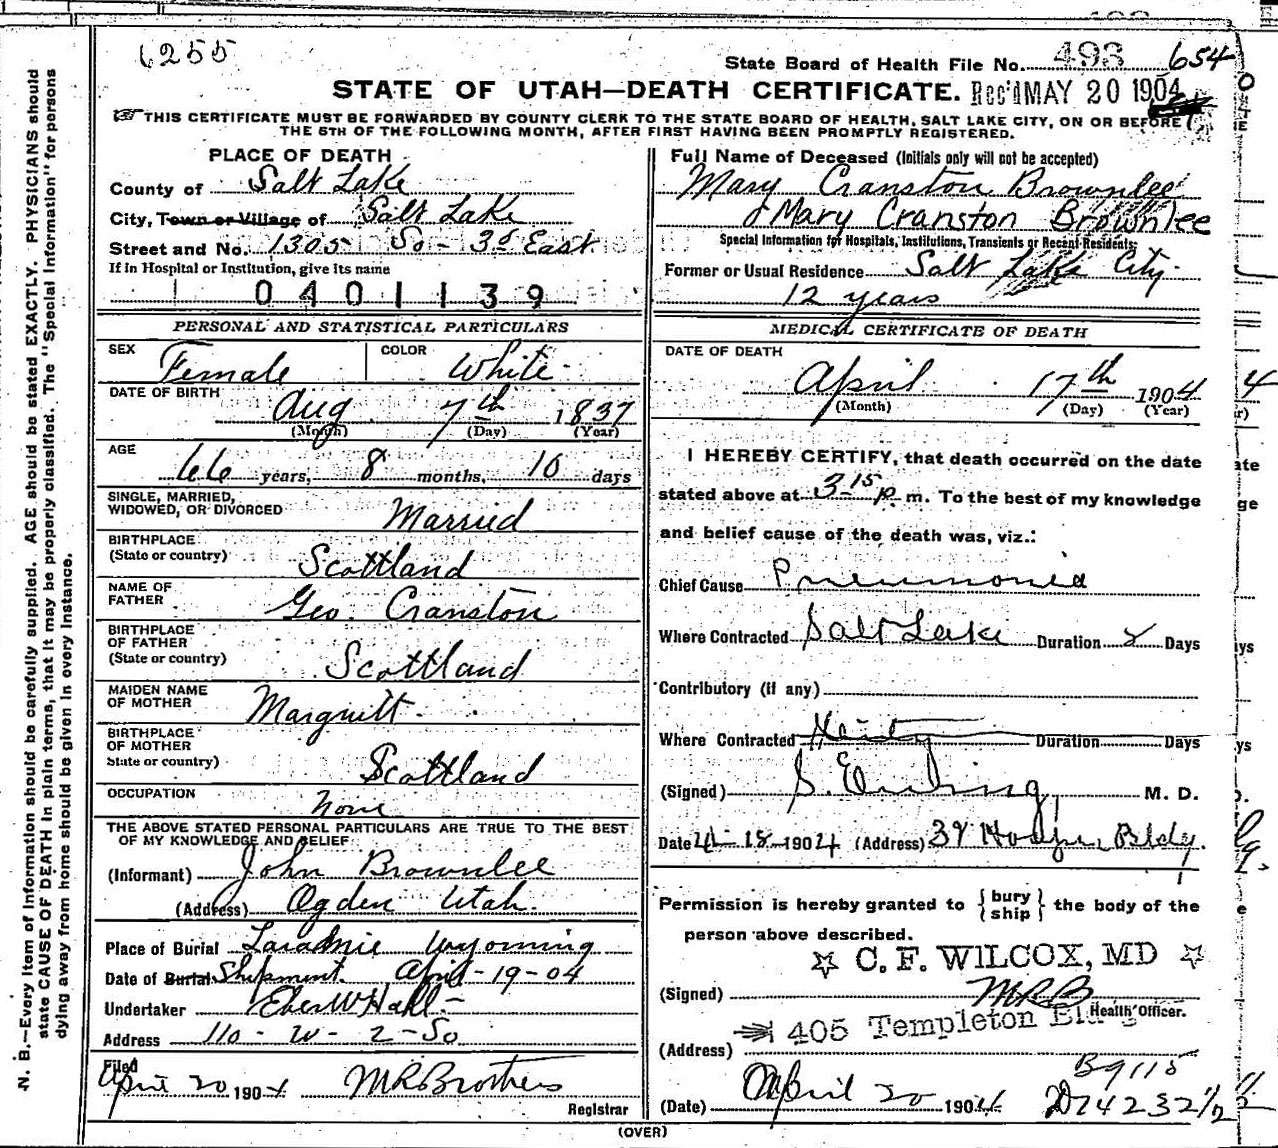 6255
State Board of Health File No. 493 654
STATE OF UTAH—DEATH CERTIFICATE. Rec'd MAY 20 1904
THIS CERTIFICATE MUST BE FORWARDED BY COUNTY CLERK TO THE STATE BOARD OF HEALTH, SALT LAKE CITY, ON OR BEFORE
THE 5TH OF THE FOLLOWING MONTH, AFTER FIRST HAVING BEEN PROMPTLY REGISTERED.
N. B.—Every item of information should be carefully supplied. AGE should be stated EXACTLY. PHYSICIANS should
state CAUSE OF DEATH in plain terms, that it may be properly classified. The "Special Information" for persons
dying away from home should be given in every instance.
PLACE OF DEATH
County of Salt Lake
City, Town or Village of Salt Lake
Street and No. 1305 So - 3d East
If in Hospital or Institution, give its name
0401139
PERSONAL AND STATISTICAL PARTICULARS
SEX Female COLOR White
DATE OF BIRTH Aug 7th 1837
(Month) (Day) (Year)
AGE 66 years, 8 months, 10 days
SINGLE, MARRIED,
WIDOWED, OR DIVORCED Married
BIRTHPLACE
(State or country) Scottland
NAME OF
FATHER Geo. Cranston
BIRTHPLACE
OF FATHER
(State or country) Scottland
MAIDEN NAME
OF MOTHER
BIRTHPLACE
OF MOTHER
State or country) Scottland
OCCUPATION None
THE ABOVE STATED PERSONAL PARTICULARS ARE TRUE TO THE BEST
OF MY KNOWLEDGE AND BELIEF
(Informant) John Brownlee
(Address) Ogden Utah.
Place of Burial Wyoming
Date of Burial Shipment April-19-04
Undertaker Eber W Hall
Address 110-W-2-So
Filed
April 20 1904 MRBrothers
Registrar
Full Name of Deceased (Initials only will not be accepted)
Mary Cranston Brownlee
Mary Cranston Brownlee
Special Information for Hospitals, Institutions, Transients or Recent Residents:
Former or Usual Residence Salt Lake City
12 years
MEDICAL CERTIFICATE OF DEATH
DATE OF DEATH
April 17th 1904
(Month) (Day) (Year)
I HEREBY CERTIFY, that death occurred on the date
stated above at 3 15 p m. To the best of my knowledge
and belief cause of the death was, viz.:
Chief Cause Pneumonia
Where Contracted Salt Lake Duration Days
Contributory (if any)
Where Contracted Duration Days
(Signed) M. D.
Date 4-18-1904 (Address) Bldg.
Permission is hereby granted to {bury
ship} the body of the
person above described.
C. F. WILCOX, MD
(Signed) MRB Health Officer.
405 Templeton Bldg
(Address)
B9115
(Date) April 20 1904
(OVER)